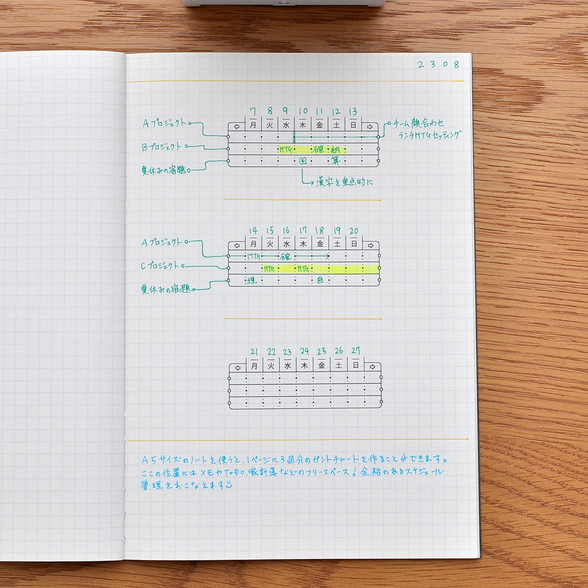 2308
7 8 9 10 11 12 13
月 火 水 木 金 土 日
Aプロジェクト
チーム顔合わせ
ランチMTGセッティング
Bプロジェクト
MTG 確 納
夏休みの宿題
国 算
漢字を重点的に
14 15 16 17 18 19 20
月 火 水 木 金 土 日
Aプロジェクト
MTG 確
Cプロジェクト
MTG MTG
夏休みの宿題
理
21 22 23 24 25 26 27
月 火 水 木 金 土 日
A5サイズのノートを使うと、1ページに3週分のガントチャートを作ることができます。
ここの位置にはメモやToDo、家計簿などのフリースペース♪余裕のあるスケジュール
管理をおこなえます